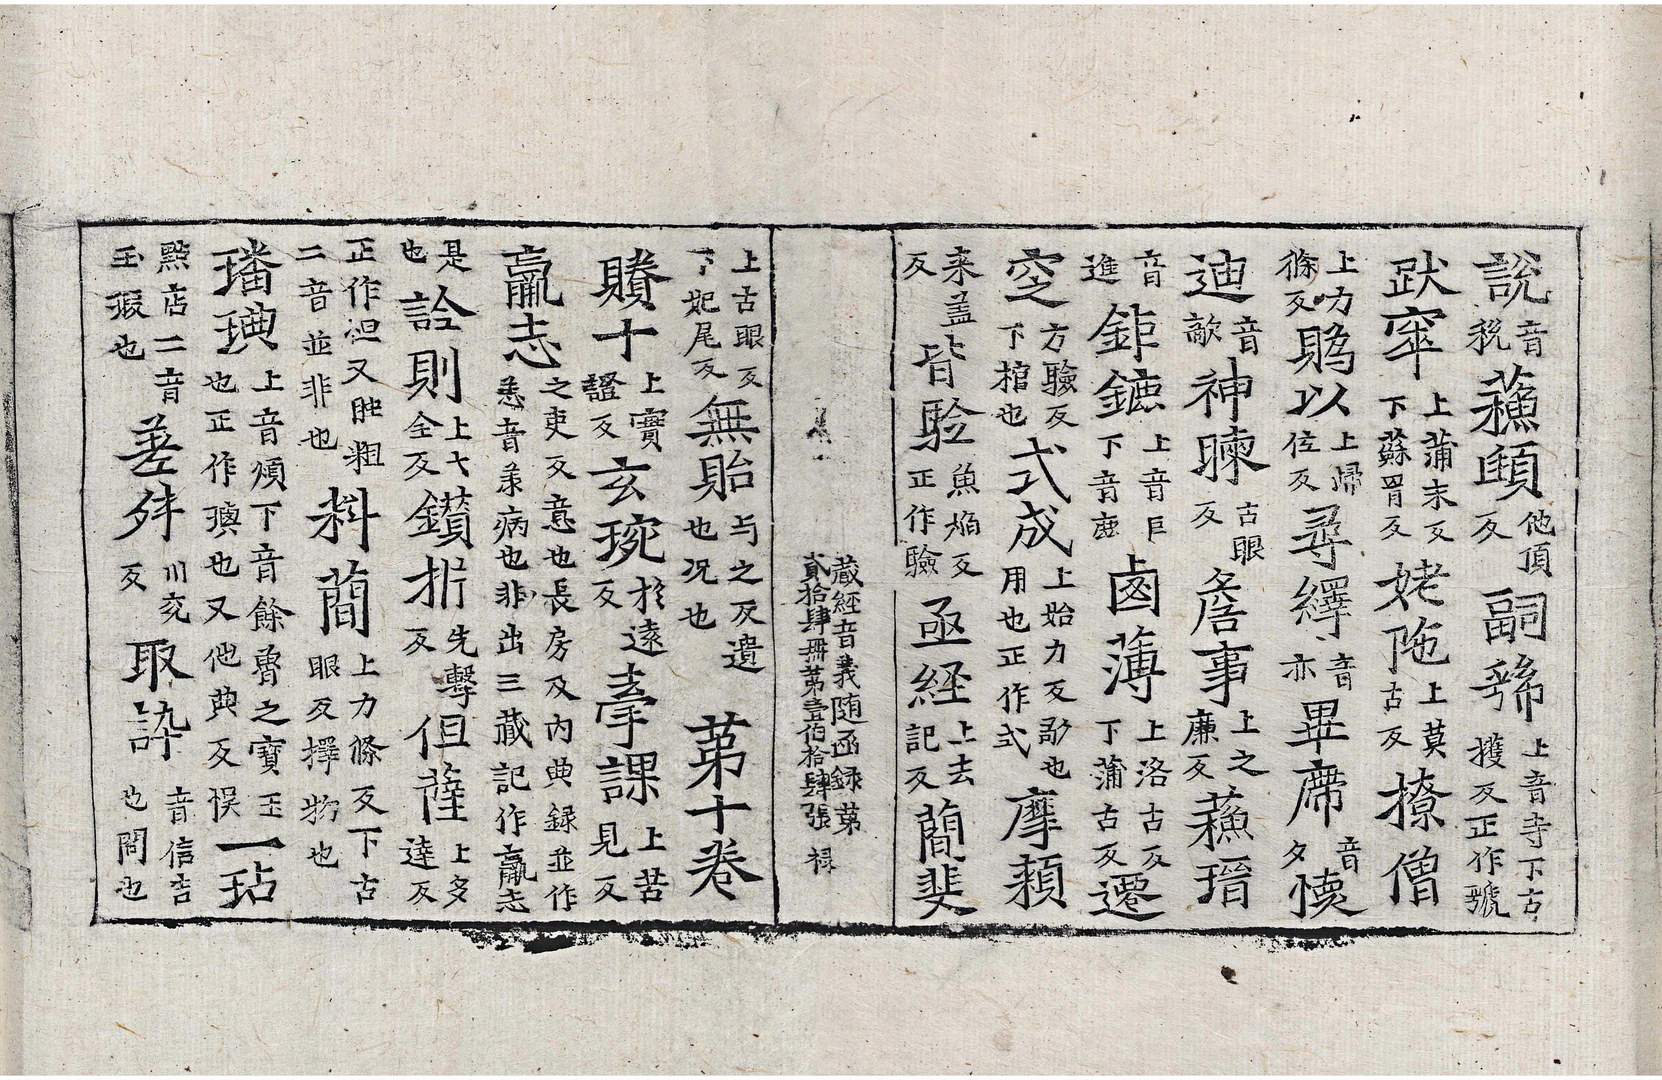 說音税蘓頤他頂反嗣䝞上音寺下古獲反正作虢
跋窣上蒲末反下蘇胃反姥陁上莫古反撩僧
上力條反䞈以上歸位反尋繹音亦畢席音夕懐
迪音敵神暕古眼反詹事上之廉反蘓瑨
音進鉅鏕上音巨下音鹿鹵薄上洛古反下蒲古反遷
窆方驗反下棺也式成上始力反㪯也用也正作式摩頼
来盖反皆騐魚㷔反正作驗亟經上去記反蕳斐
蔵經音義随函録第
貳拾肆冊第壹伯拾肆張 禄
上古眼反下妃尾反無貽与之反遺也况也 第十卷
賸十上實證反玄琬於遠反牽課上苦見反
羸志之吏反意也長房及内典録並作恙音羕病也非出三蔵記作羸志
是也詮則上七全反鑚析先擊反但薩上多達反
正作泹又䏲粗二音並非也料蕳上力條反下古眼反擇物也
璠璵上音煩下音餘魯之寳玉也正作璵也又他典反悮一玷
點店二音玉瑕也差舛川兖反取訣音信告也問也